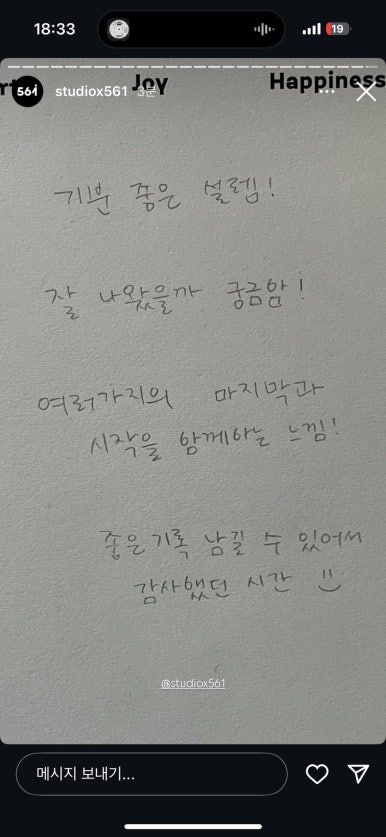 18:33
19
Joy
Happiness
561
studiox561 3분
기분 좋은 설렘!
잘 나왔을까 궁금함!
여러가지의 마지막과
시작을 함께하는 느낌!
좋은 기록 남길 수 있어서
감사했던 시간 :)
@studiox561
메시지 보내기...